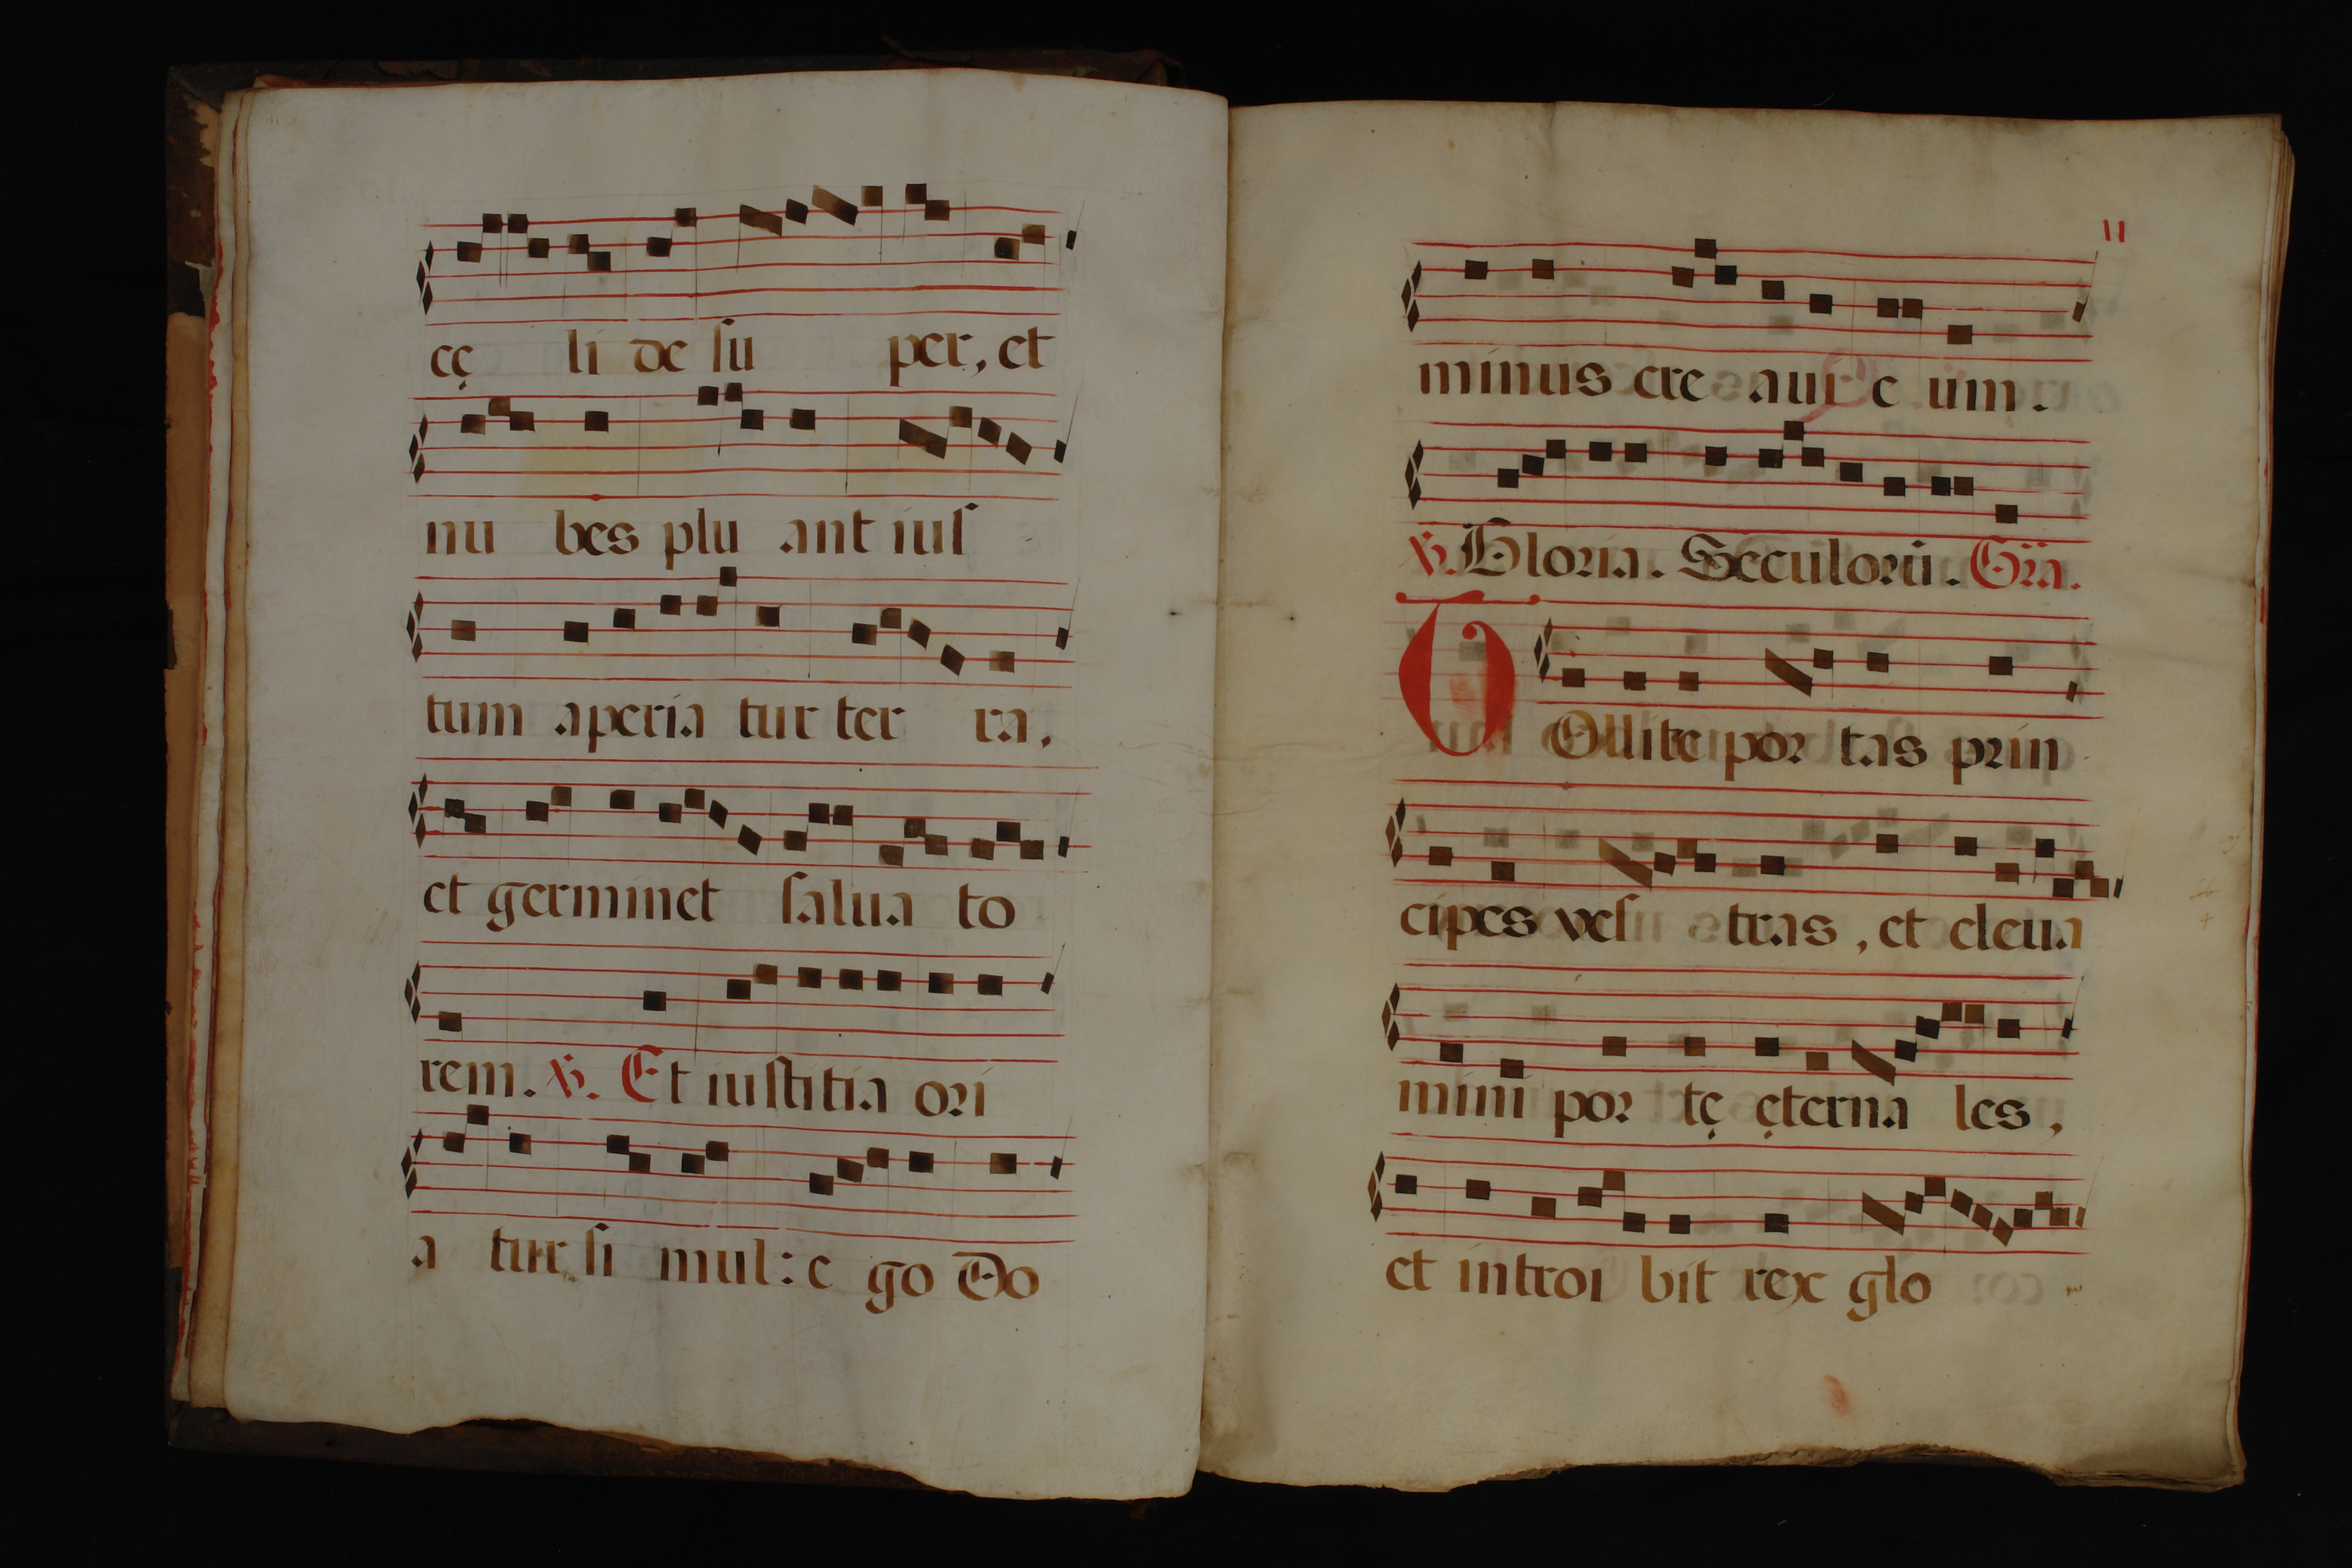 cę li de ſu per, et
nu bes plu ant iuſ
tum aperia tur ter ra,
et germinet ſalua to
rem. ℣. Et iuſtitia ori
a tur ſi mul: e go Do
11
minus cre aui e um.
℣. Gloria. Seculorũ. Gr̃a.
TOllite por tas prin
cipes veſ tras, et eleua
mini por tę ęterna les,
et introi bit rex glo